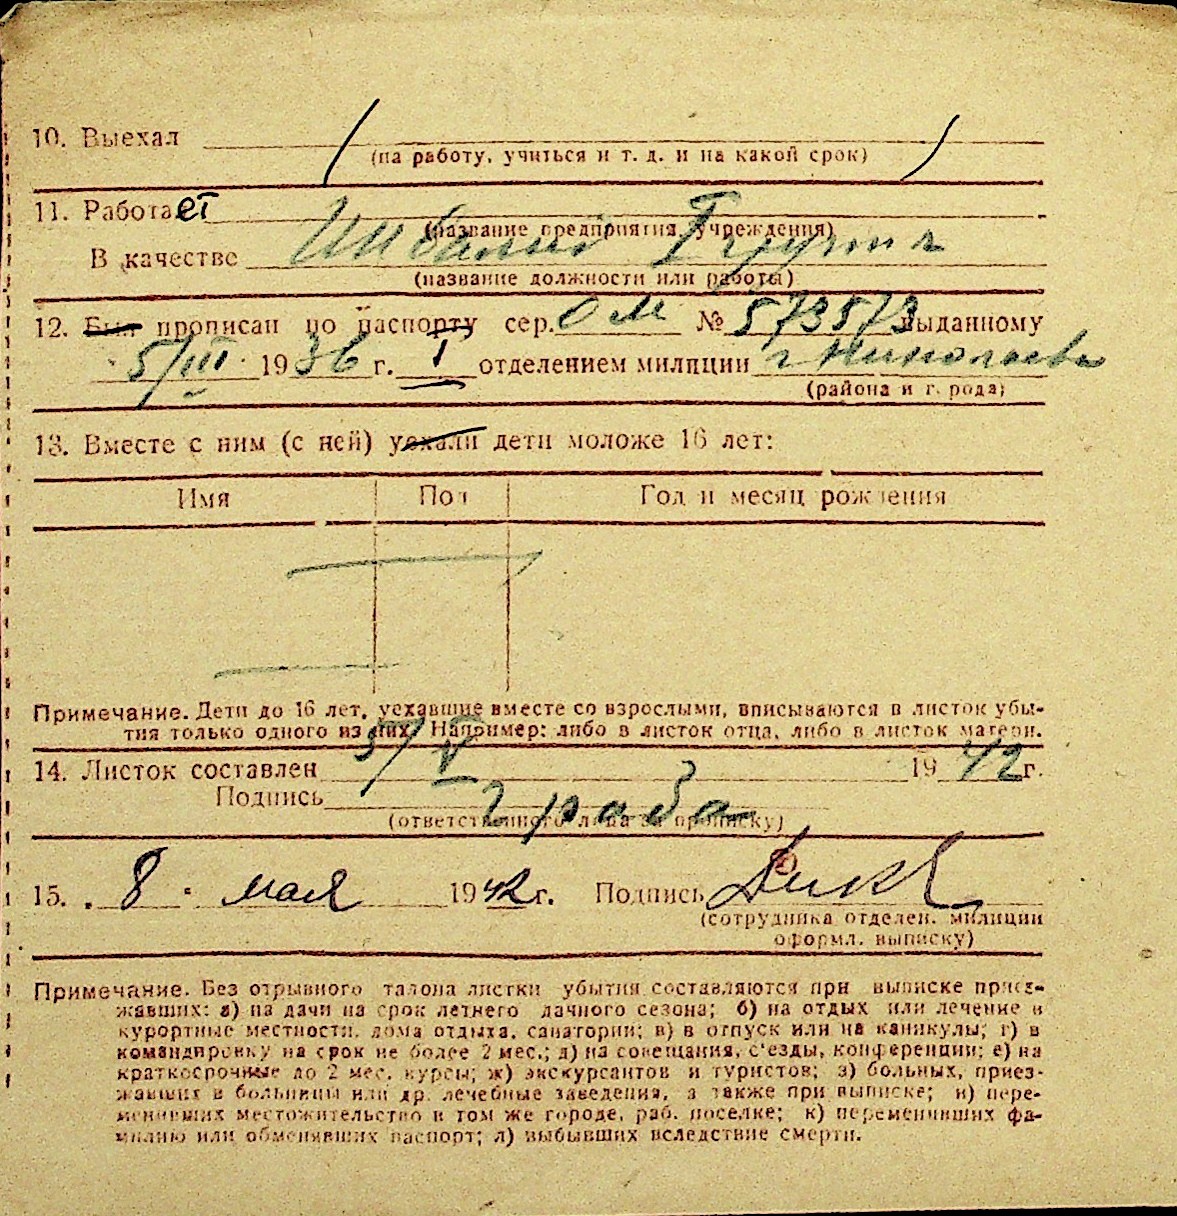 10. Выехал
(на работу, учиться и т. д. и на какой срок)
11. Работает
(название предприятия, учреждения)
В качестве Инвалид II группы
(название должности или работы)
12. Был прописан по паспорту сер. ОМ № 573573 выданному
5/III 1936 г. I отделением милиции г. Николаева
(района и города)
13. Вместе с ним (с ней) уехали дети моложе 16 лет:
Имя Пол Год и месяц рождения
Примечание. Дети до 16 лет, уехавшие вместе со взрослыми, вписываются в листок убы-
тия только одного из них. Например: либо в листок отца, либо в листок матери.
14. Листок составлен 5/V 1942 г.
Подпись
(ответственного лица за прописку)
15. 8 мая 1942 г. Подпись
(сотрудника отделен. милиции
оформл. выписку)
Примечание. Без отрывного талона листки убытия составляются при выписке приез-
жавших: а) на дачи на срок летнего дачного сезона; б) на отдых или лечение в
курортные местности, дома отдыха, санатории; в) в отпуск или на каникулы; г) в
командировку на срок не более 2 мес.; д) на совещания, с'езды, конференции; е) на
краткосрочные до 2 мес. курсы; ж) экскурсантов и туристов; з) больных, приез-
жавших в больницы или др. лечебные заведения, а также при выписке; и) пере-
менивших местожительство в том же городе, раб. поселке; к) переменивших фа-
милию или обменявших паспорт; л) выбывших вследствие смерти.